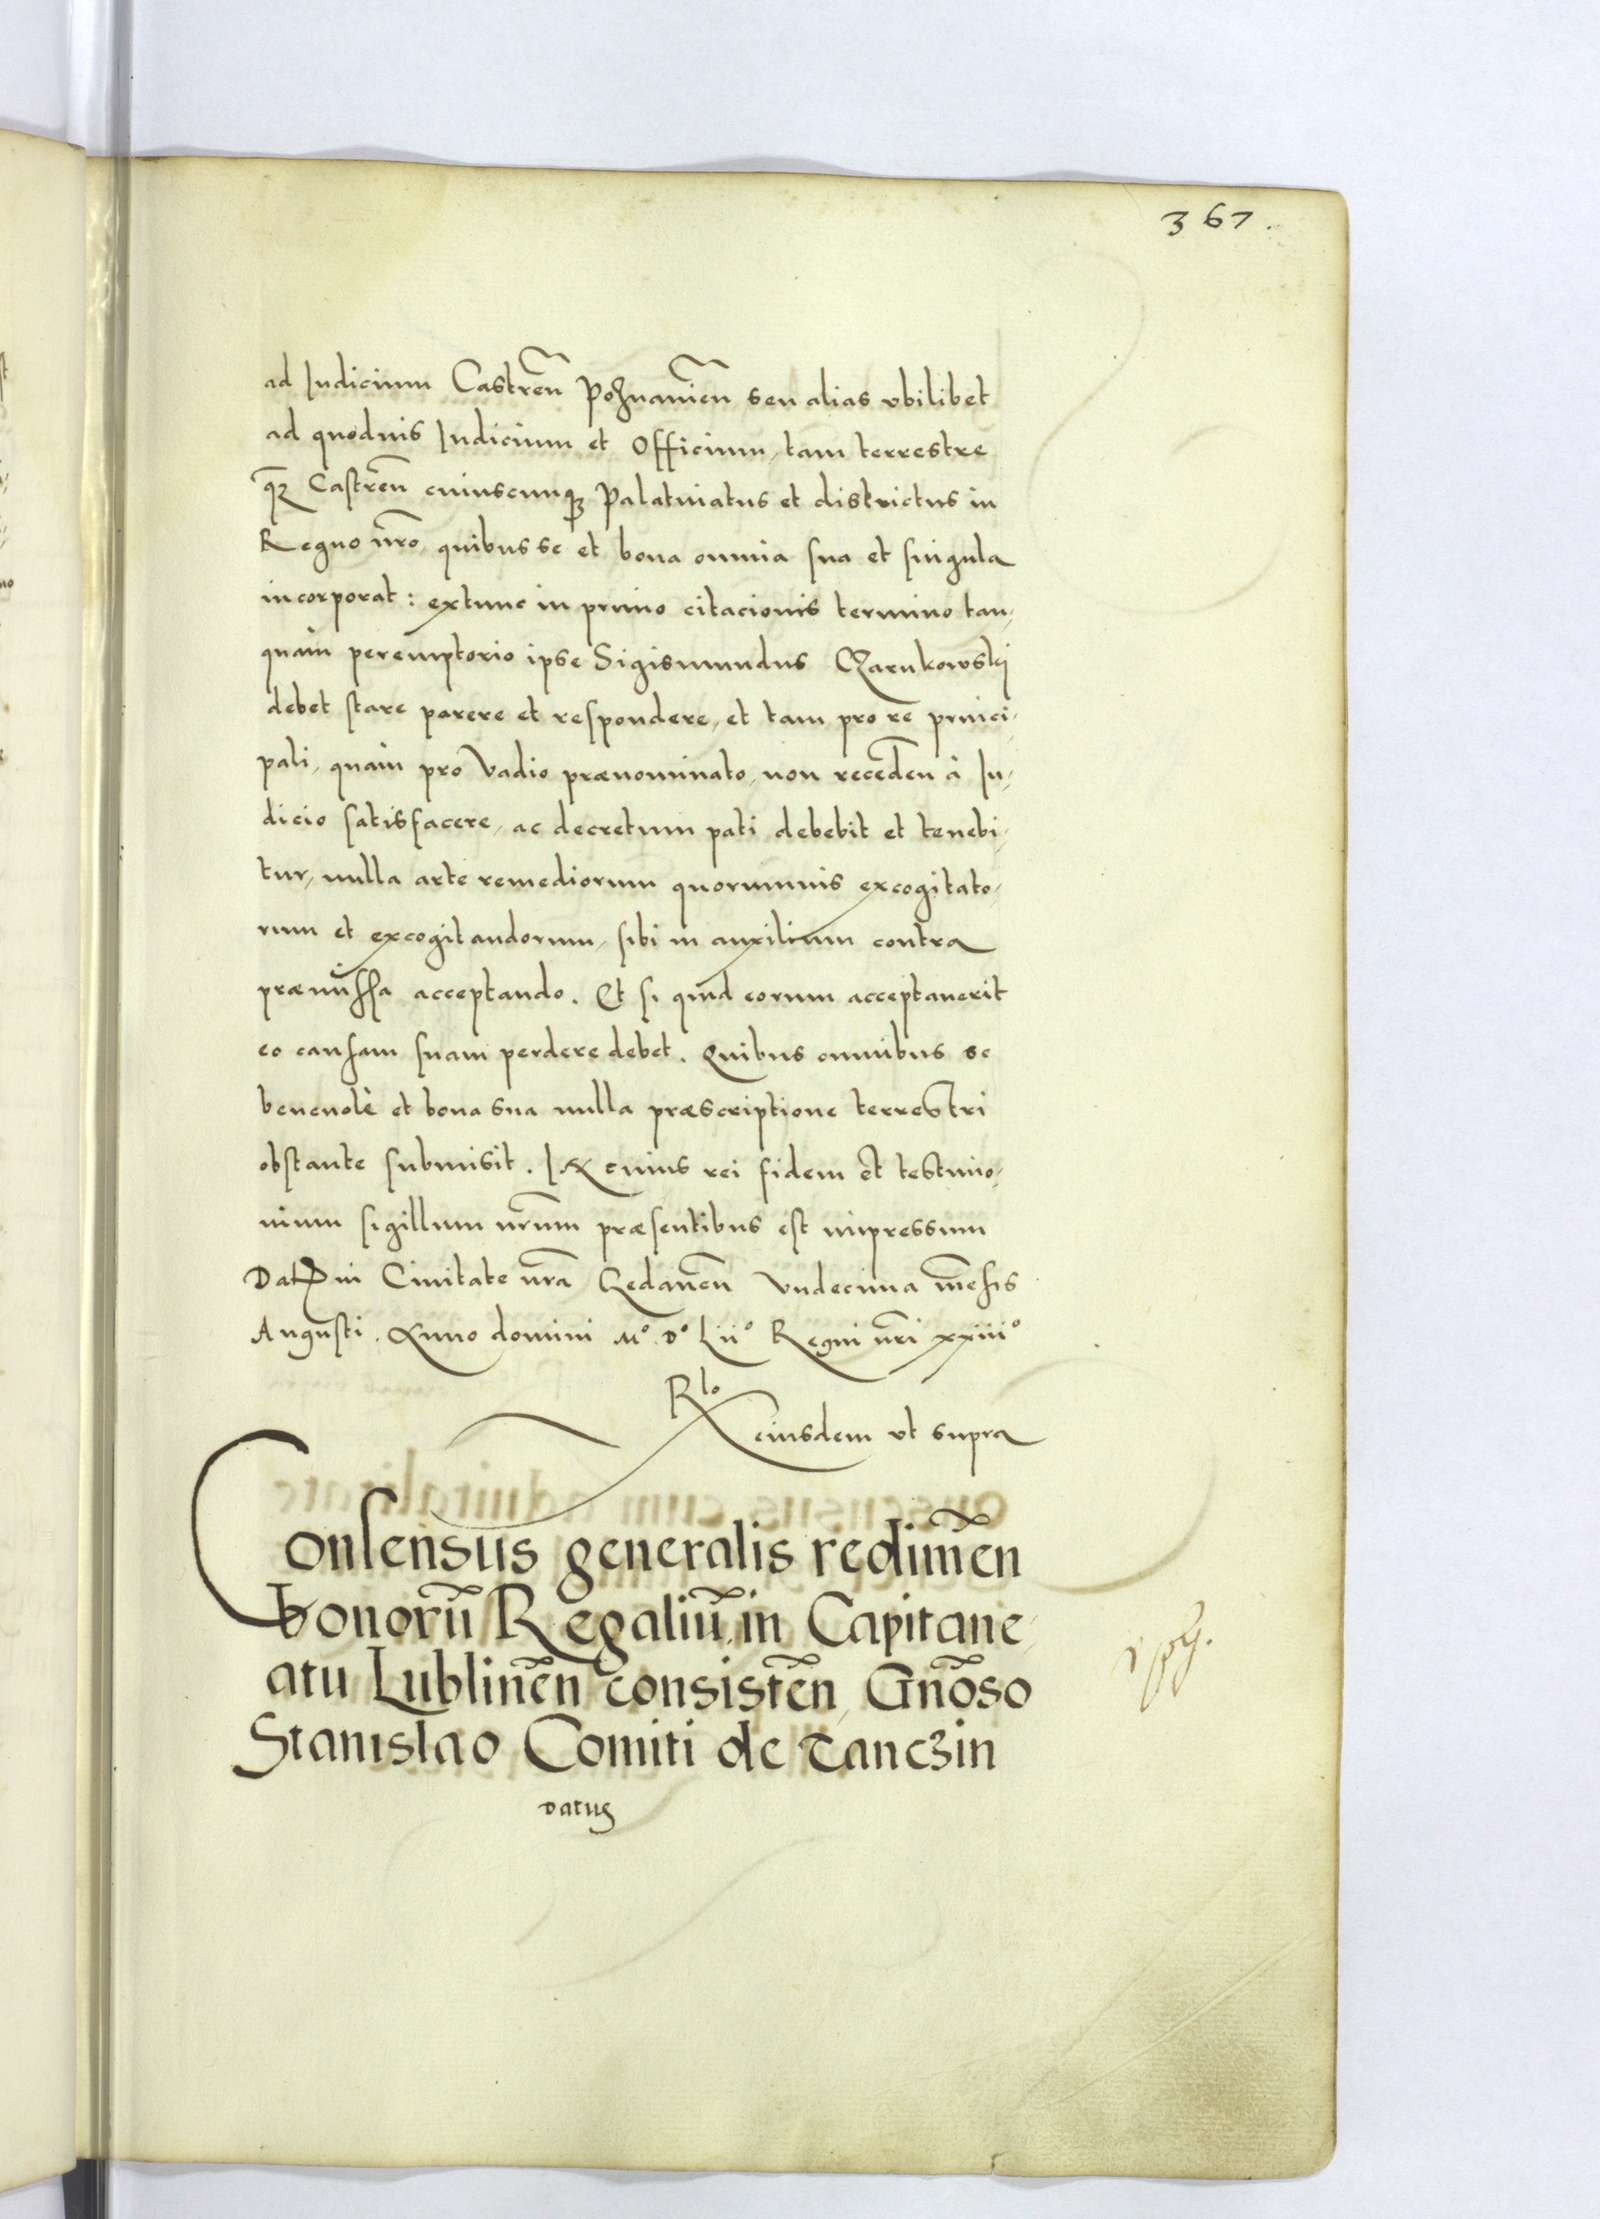 367.
ad Iudicium Castren̄ Poznanien̄ seu alias vbilibet
ad quoduis Iudicium et Officium, tam terrestre
q̄z Castren̄ cuiuscunq3 Palatinatus et districtus in
Regno nr̄o, quibus se et bona omnia sua et singula
incorporat: extunc in primo citacionis termino tan,
quàm peremptorio ipse Sigismundus Czarnkowskj
debet stare parere et respondere, et tam pro re princi,
pali, quàm pro Vadio prænominato, non receden̄ à Iu,
dicio satisfacere, ac decretum pati debebit et tenebi,
tur, nulla arte remediorum quorumuis excogitato,
rum et excogitandorum, sibi in auxilium contra
præmissa acceptando. Et si quid eorum acceptauerit
eo causam suam perdere debet. Quibus omnibus se
beneuolè et bona sua nulla præscriptione terrestri
obstante submisit. In cuius rei fidem et testimo,
nium sigillum nr̄um præsentibus est impressum
Dat in Ciuitate nr̄a Gedanen̄ Vndecima men̄sis
Augusti. Anno domini M° D° Lii° Regni nr̄i xxiii°
Rlo
eiusdem vt supra
Consensus generalis redimen̄
bonorū Regaliū in Capitane,
atu Lublinen̄ consisten̄, Gn̄oso
Stanislao Comiti de Tanczin
datus